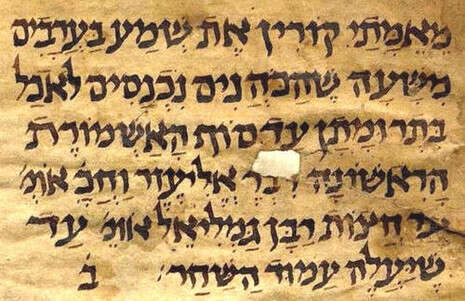 מאמתי קורין את שמע בערבים
משעה שהכהנים נכנסים לאכל
בתרומתן עד סוף האשמורת
הראשונה אליעזר וחכ' אומ'
חצות רבן גמליאל אומ' עד
שיעלה עמוד השחר ב